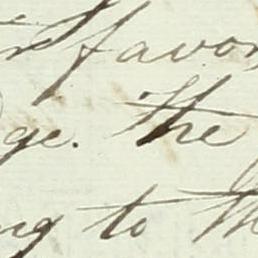 favor
ge. The
ng to th